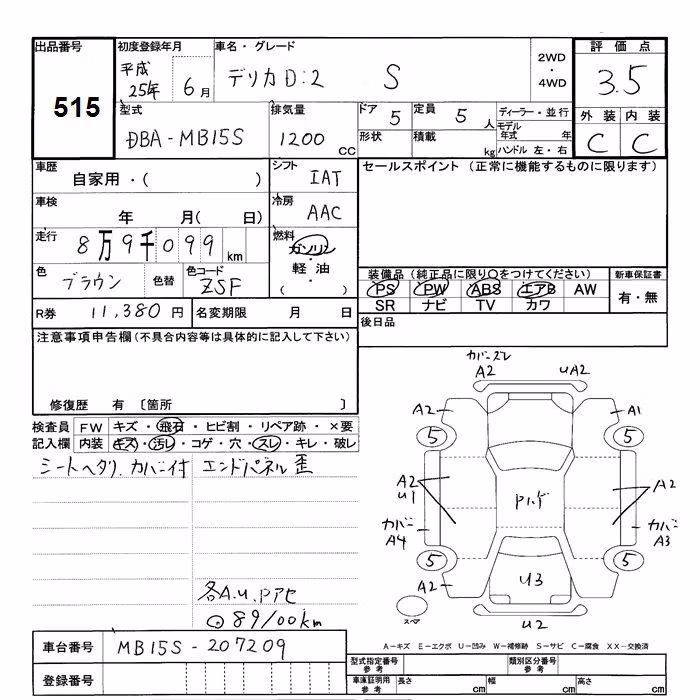 出品番号
515
初度登録年月
平成
25年 6月
車名・グレード
デリカD:2 S
2WD
・
4WD
評価点
3.5
外装 内装
C C
型式
DBA-MB15S
排気量
1200 CC
ドア 5
定員 5 人
形状
積載 kg
ディーラー・並行
モデル年式 年
ハンドル 左・右
車歴
自家用・( )
シフト
IAT
車検
年 月( 日)
冷房
AAC
走行
8万9千099 km
燃料
ガソリン
・
軽油
・
( )
色
ブラウン
色替
色コード
ZSF
R券 11,380 円
名変期限 月 日
セールスポイント (正常に機能するものに限ります)
装備品(純正品に限り○をつけてください)
PS PW ABS エアB AW
SR ナビ TV カワ
新車保証書
有・無
後日品
注意事項申告欄(不具合内容等は具体的に記入して下さい)
修復歴 有 〔箇所 〕
検査員
記入欄
FW キズ・飛石・ヒビ割・リペア跡・×要
内装 キズ・汚レ・コゲ・穴・スレ・キレ・破レ
シートヘタリ.カバー付
エンドパネル歪
各A.U.Pアセ
◎89100km
カバーズレ
A2 UA2
A2 A1
5 5
A2
U1
Pハゲ
A2
カバー
A4
カバー
A3
5 5
A2
U3
U2
スペア
A-キズ E-エクボ U-凹み W-補修跡 S-サビ C-腐食 XX-交換済
車台番号 MB15S-207209
登録番号
型式指定番号
参考
類別区分番号
参考
車庫証明用
参考
長さ cm
幅 cm
高さ cm